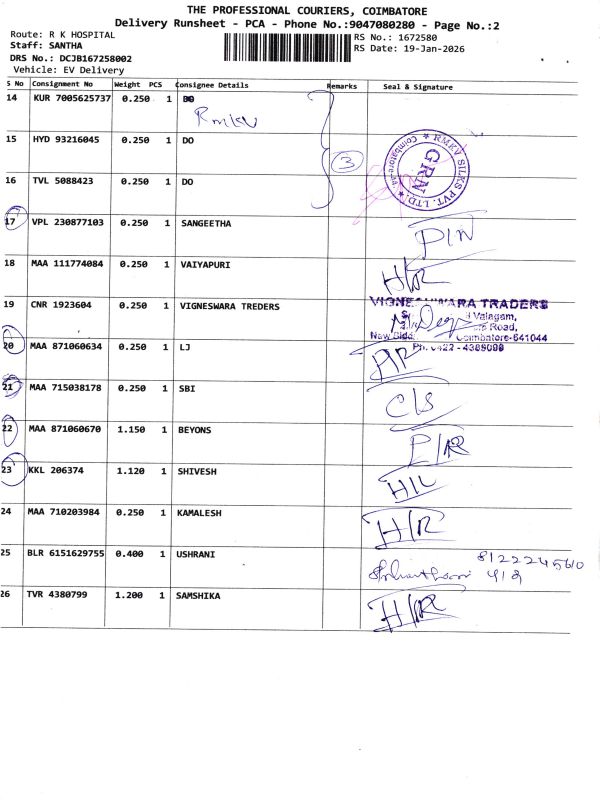 THE PROFESSIONAL COURIERS, COIMBATORE
Delivery Runsheet - PCA - Phone No.:9047080280 - Page No.:2
Route: R K HOSPITAL
Staff: SANTHA
DRS No.: DCJB167258002
Vehicle: EV Delivery
RS No.: 1672580
RS Date: 19-Jan-2026
S No Consignment No Weight PCS Consignee Details Remarks Seal & Signature
14 KUR 7005625737 0.250 1 DO
Rmkv
3
15 HYD 93216045 0.250 1 DO
RMKV SILKS PVT. LTD.
GRN
16 TVL 5088423 0.250 1 DO
17 VPL 230877103 0.250 1 SANGEETHA
D/N
18 MAA 111774084 0.250 1 VAIYAPURI
H/R
19 CNR 1923604 0.250 1 VIGNESWARA TREDERS
VIGNESHWARA TRADERS
Valagam,
Road,
Coimbatore-641044
Ph: 0422 - 4388098
20 MAA 871060634 1 LJ 0.250
21 MAA 715038178 0.250 1 SBI
C/S
22 MAA 871060670 1.150 1 BEYONS
23 KKL 206374 1.120 1 SHIVESH
24 MAA 710203984 0.250 1 KAMALESH
H/R
25 BLR 6151629755 0.400 1 USHRANI
8122224560
26 TVR 4380799 1.200 1 SAMSHIKA
H/R